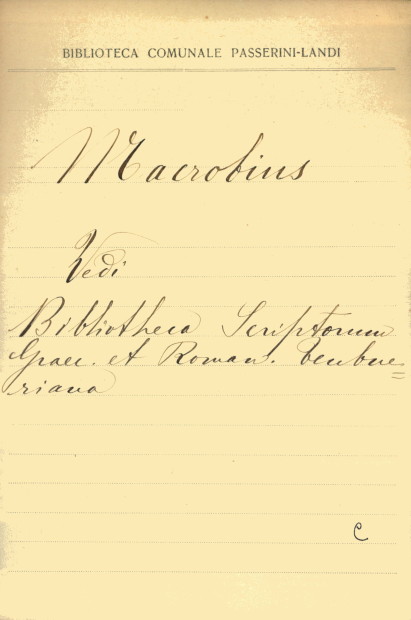 BIBLIOTECA COMUNALE PASSERINI-LANDI
Macrobius
Vedi
Bibliotheca Scriptorum
Graec. et Roman. Teubne=
riana
C